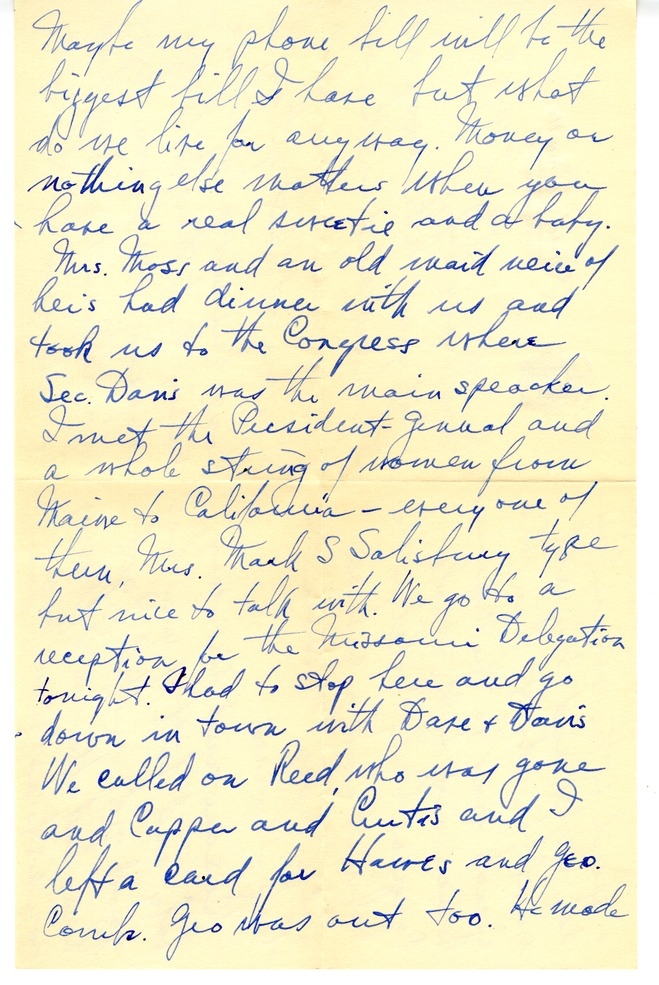 Maybe my phone bill will be the
biggest bill I have but what
do we live for anyway. Money or
nothing else matters when you
have a real sweetie and a baby.
Mrs. Moss and an old maid neice of
hers had dinner with us and
took us to the Congress where
Sec. Davis was the main speacker.
I met the President-General and
a whole string of women from
Maine to California - every one of
them, Mrs. Mark S Salisbury type
but nice to talk with. We go to a
reception for the Missouri Delegation
tonight. I had to stop here and go
down in town with Dave & Davis
We called on Reed, who was gone
and Capper and Curtis and I
left a card for Hawes and Geo.
Comb. Geo was out too. He made